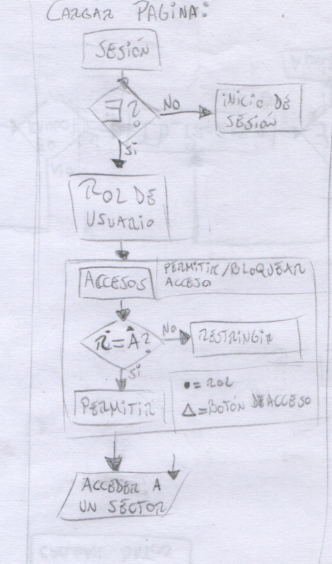 CARGAR PAGINA:
SESIÓN
∃?
NO
INICIO DE
SESIÓN
SI
ROL DE
USUARIO
ACCESOS
PERMITIR/BLOQUEAR
ACCESO
R=A?
NO
RESTRINGIR
SI
PERMITIR
•=ROL
Δ=BOTÓN DE ACCESO
ACCEDER A
UN SECTOR